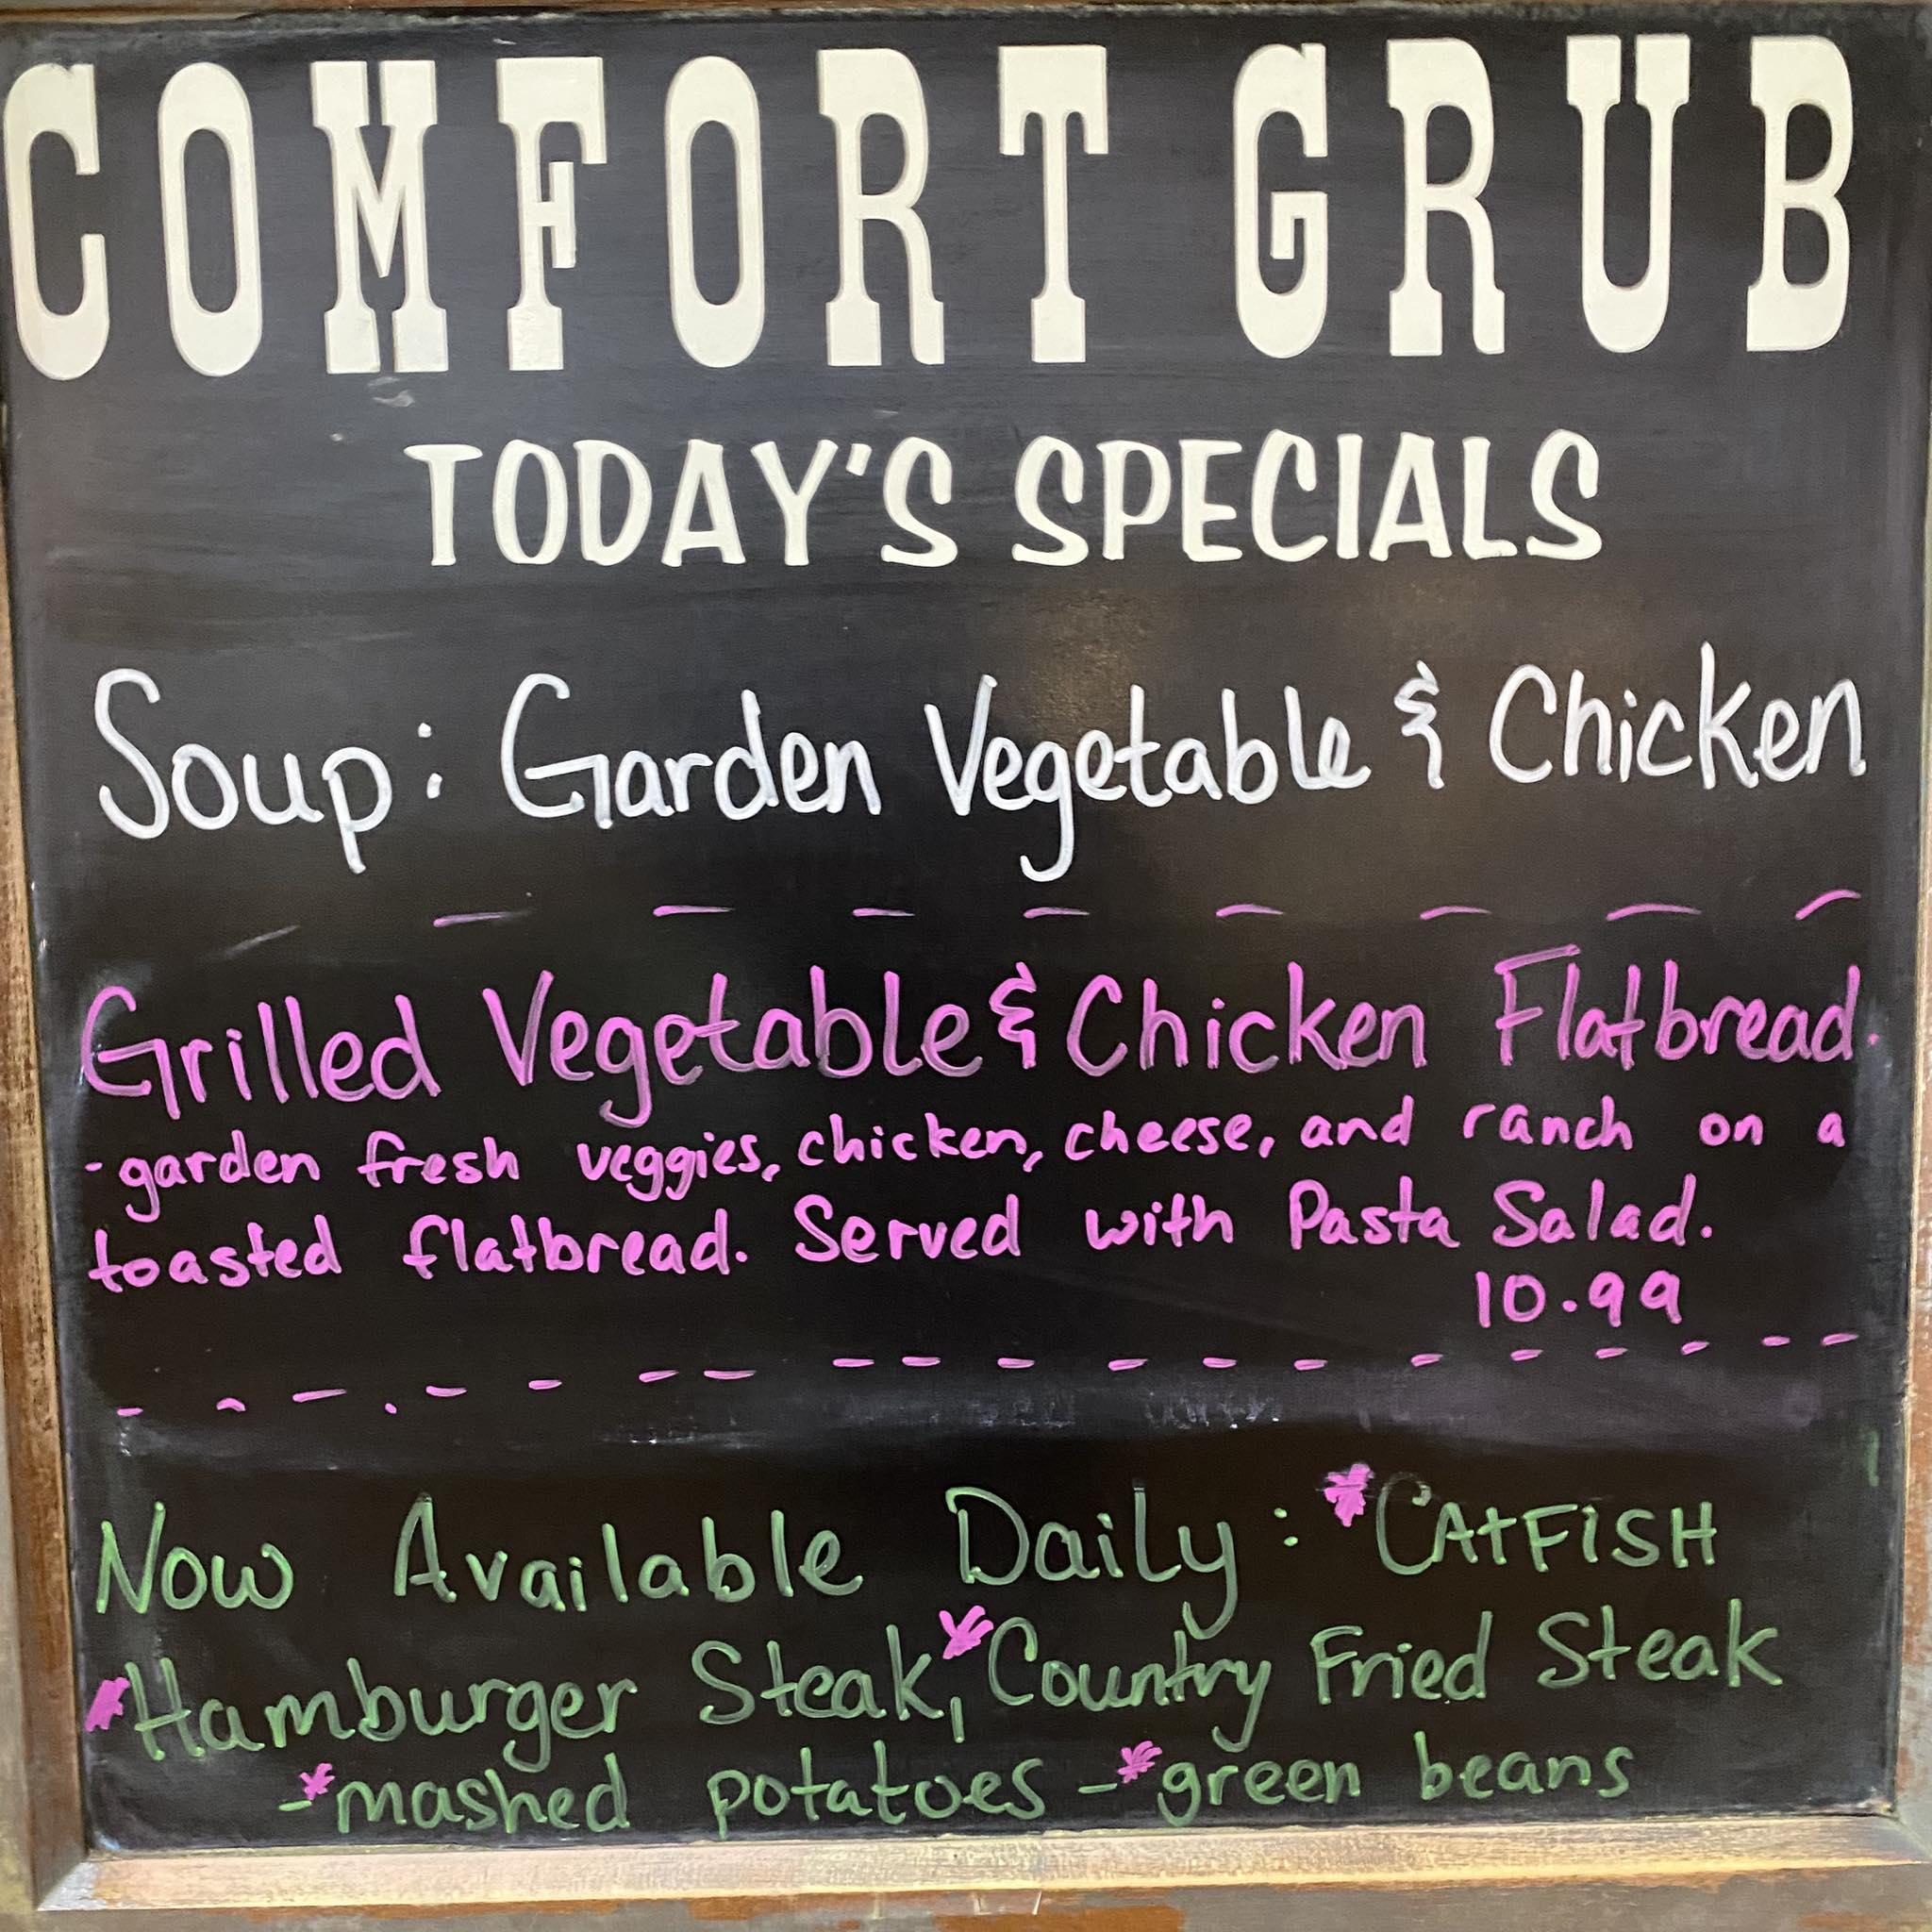 COMFORT GRUB
TODAY'S SPECIALS
Soup: Garden Vegetable & Chicken
Grilled Vegetable & Chicken Flatbread.
- garden fresh veggies, chicken, cheese, and ranch on a
toasted flatbread. Served with Pasta Salad.
10.99
Now Available Daily: *CATFISH
*Hamburger Steak, *Country Fried Steak
-*mashed potatoes -*green beans